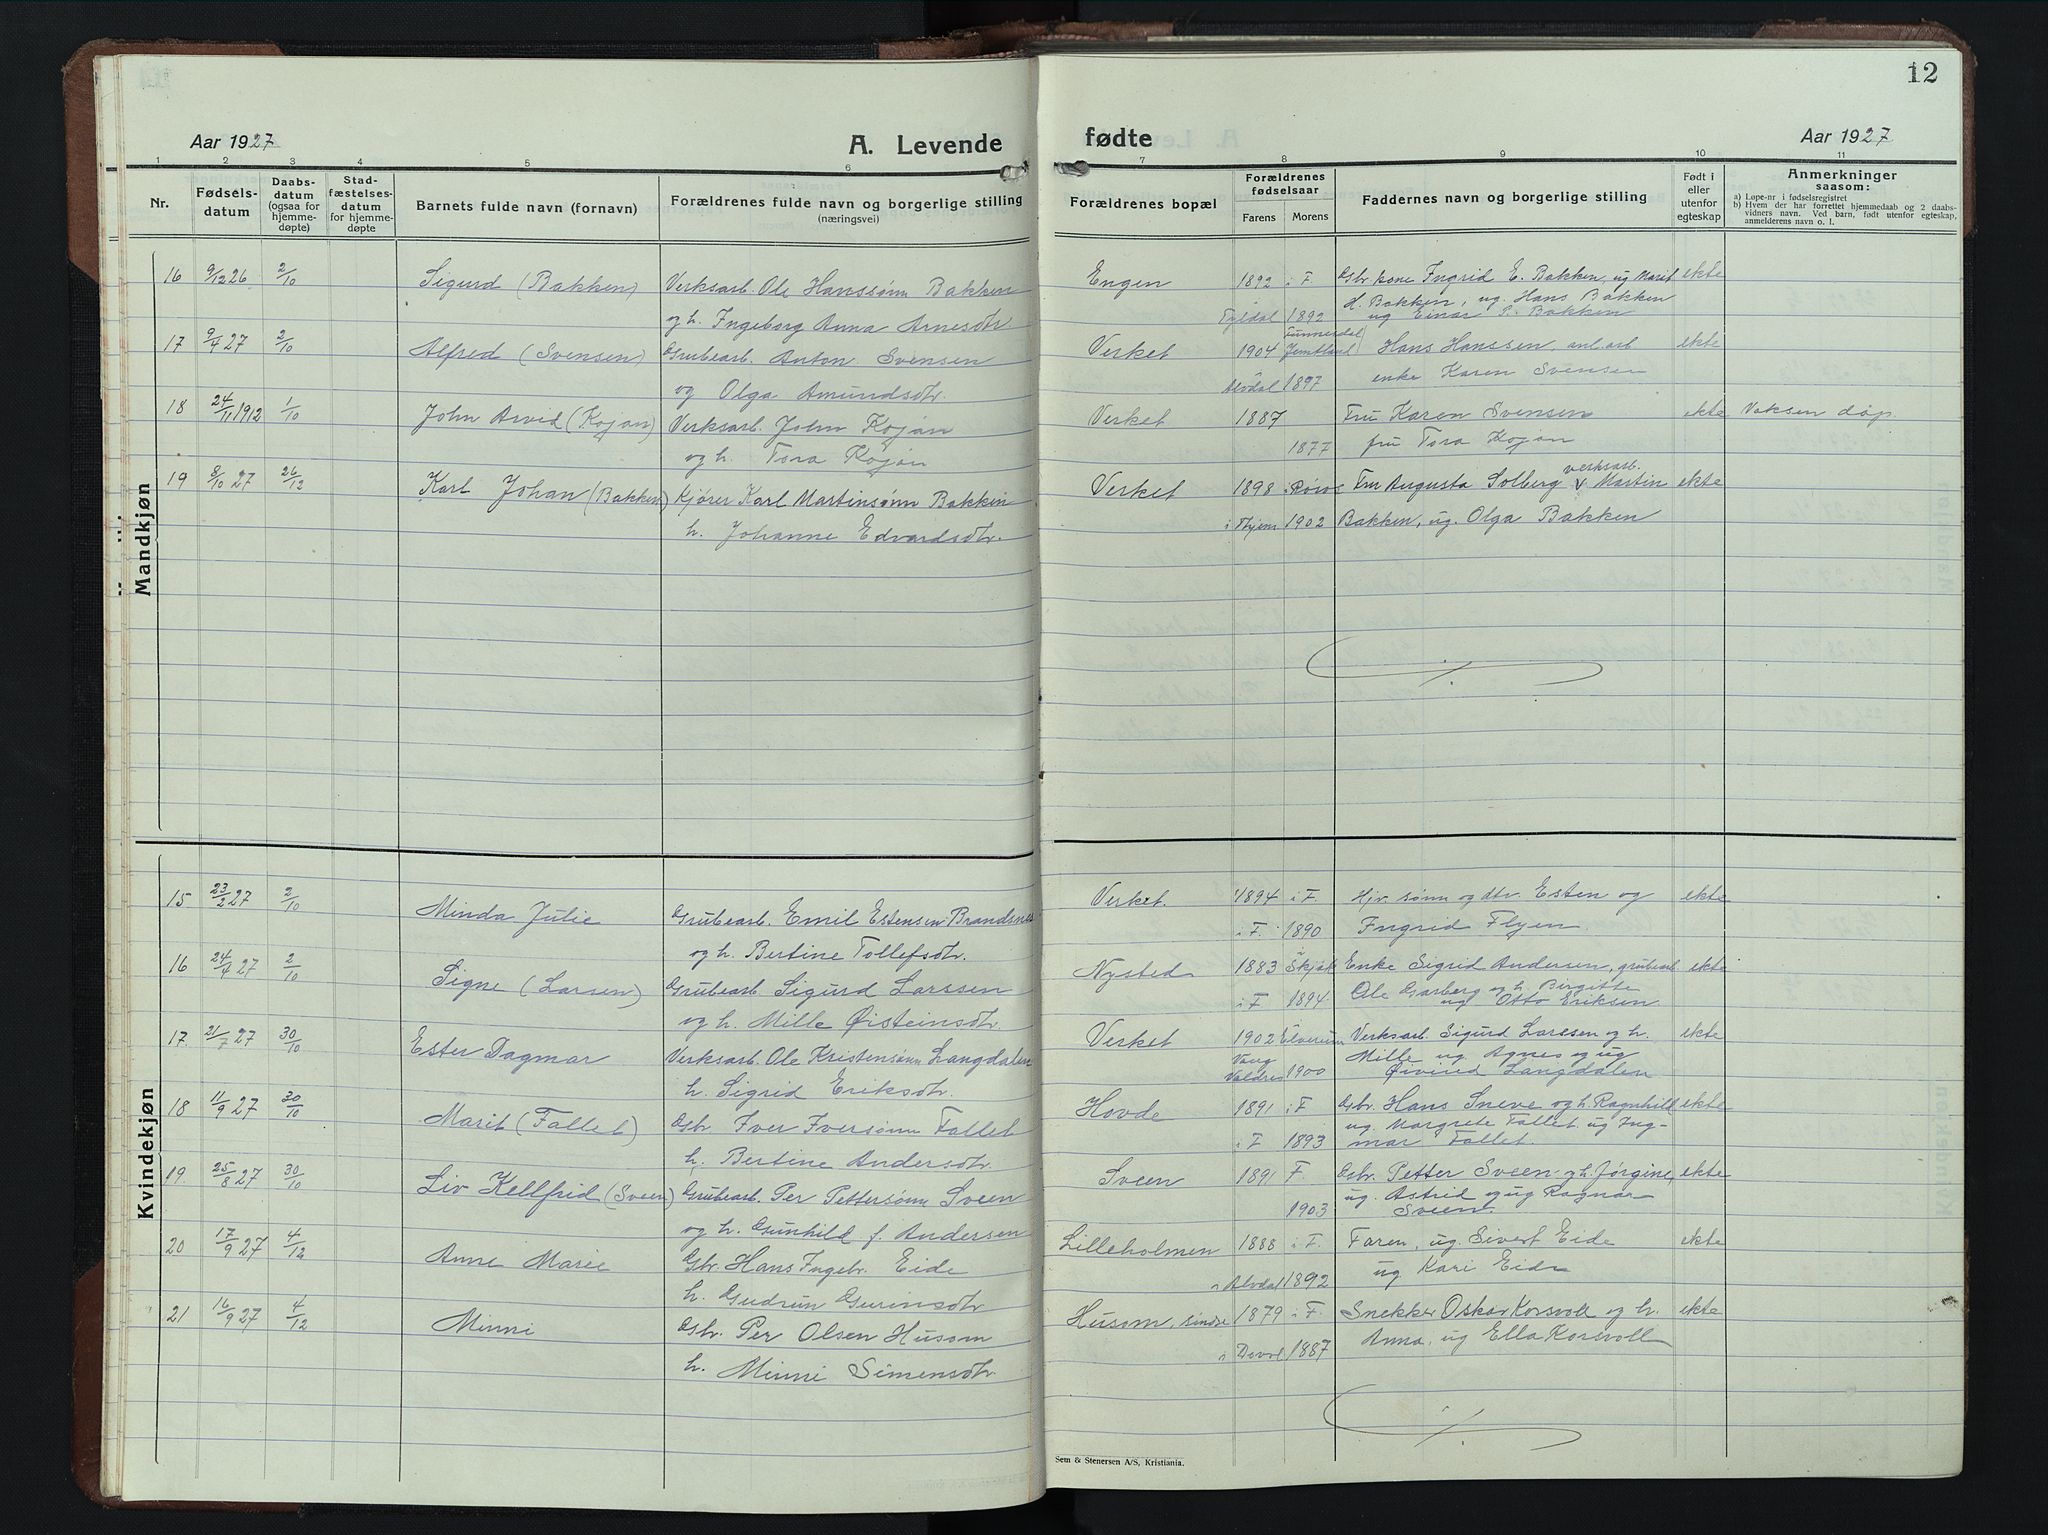 12
Aar 1927 A. Levende fødte Aar 1927
1 2 3 4 5 6 7 8 9 10 11
Nr.
Fødsels-
datum
Daabs-
datum
(ogsaa for
hjemme-
døpte)
Stad-
fæstelses-
datum
for hjemme-
døpte
Barnets fulde navn (fornavn)
Forældrenes fulde navn og borgerlige stilling
(næringsvei)
Forældrenes bopæl
Forældrenes
fødselsaar
Farens Morens
Faddernes navn og borgerlige stilling
Født i
eller
utenfor
egteskap
Anmerkninger
saasom:
a) Løpe-nr i fødselsregistret
b) Hvem der har forrettet hjemmedaab og 2 daabs-
vidners navn. Ved barn, født utenfor egteskap,
anmelderens navn o. l.
Mandkjøn
16 9/12 26 2/10 Sigurd (Bakken) Verksarb. Ole Hanssønn Bakken Engen 1892 i F. Gbr kone Ingrid E. Bakken, ug Marit ekte
og h. Ingeborg Anna Arnesdtr. Tyldal 1892 H. Bakken, ug. Hans Bakken
ug Einar P. Bakken
17 9/4 27 2/10 Alfred (Svensen) Grubearb. Anton Svensen Verket 1904 Jemtland Hans Hanssen, anl. arb ekte
og Olga Amundsdtr. Alvdal 1897 enke Karen Svensen
18 24/11 1912 1/10 John Arvid (Kojan) Verksarb. John Kojan Verket 1887 Fru Karen Svensen ekte Voksen døp.
og h. Tora Kojan 1877 fru Tora Kojan
19 8/10 27 26/12 Karl Johan (Bakken) Kjører Karl Martinsønn Bakken Verket 1898 i Røros Fru Augusta Solberg verksarb. Martin ekte
h. Johanne Edvardsdtr. 1902 Bakken, ug. Olga Bakken
Kvindekjøn
15 23/2 27 2/10 Minda Julie Grubearb. Emil Estensen Brandsnes Verket. 1894 i F. Hjv. sønn og dtr. Esten og ekte
og h. Bertine Tollefsdtr. i F. 1890 Ingrid Flyen.
16 24/4 27 2/10 Signe (Larsen) Grubearb. Sigurd Larssen Nysted 1883 Skjåk Enke Sigrid Andersen, grubearb ekte
og h. Mille Øisteinsdtr. i F 1894 Ole Garberg og h. Birgitte
ug Otto Eriksen
17. 21/7 27 30/10 Ester Dagmar Verksarb. Ole Kristensønn Langdalen Verket 1902 Elverum Verksarb. Sigurd Larssen og h. ekte
h. Sigrid Eriksdtr. Vang Valdres 1900 Mille ug. Agnes og ug
Øivind Langdalen
18 11/9 27 30/10 Marit (Fallet) Gbr Iver Iversønn Fallet Hovde 1891 i F Gbr. Hans Sneve og h. Ragnhild ekte
h. Bertine Andersdtr. i F 1893 ug. Margrete Fallet ug Ing-
mar Fallet.
19. 25/8 27 30/10 Liv Kellfrid (Sveen) Grubearb. Per Pettersønn Sveen Sveen 1891 F. Gbr. Petter Sveen og h. Jørgine, ekte
og h. Gunhild f. Andersen 1903 ug. Astrid og ug Ragnar
Sveen.
20 17/9 27 4/12 Anne Marie Gbr. Hans Ingebr. Eide Lilleholmen 1888 i F. Faren, ug. Sivert Eide ekte
h. Gudrun Gurinsdtr Alvdal 1892 ug Kari Eide
21 16/9 27 4/12 Minni Gbr. Per Olsen Husom Husom, sindre 1879 i F. Snekker Oskar Korsvoll og h. ekte
h. Minni Simensdtr. 1887 Anna, ug Ella Korsvoll
Sem & Stenersen A/S, Kristiania.